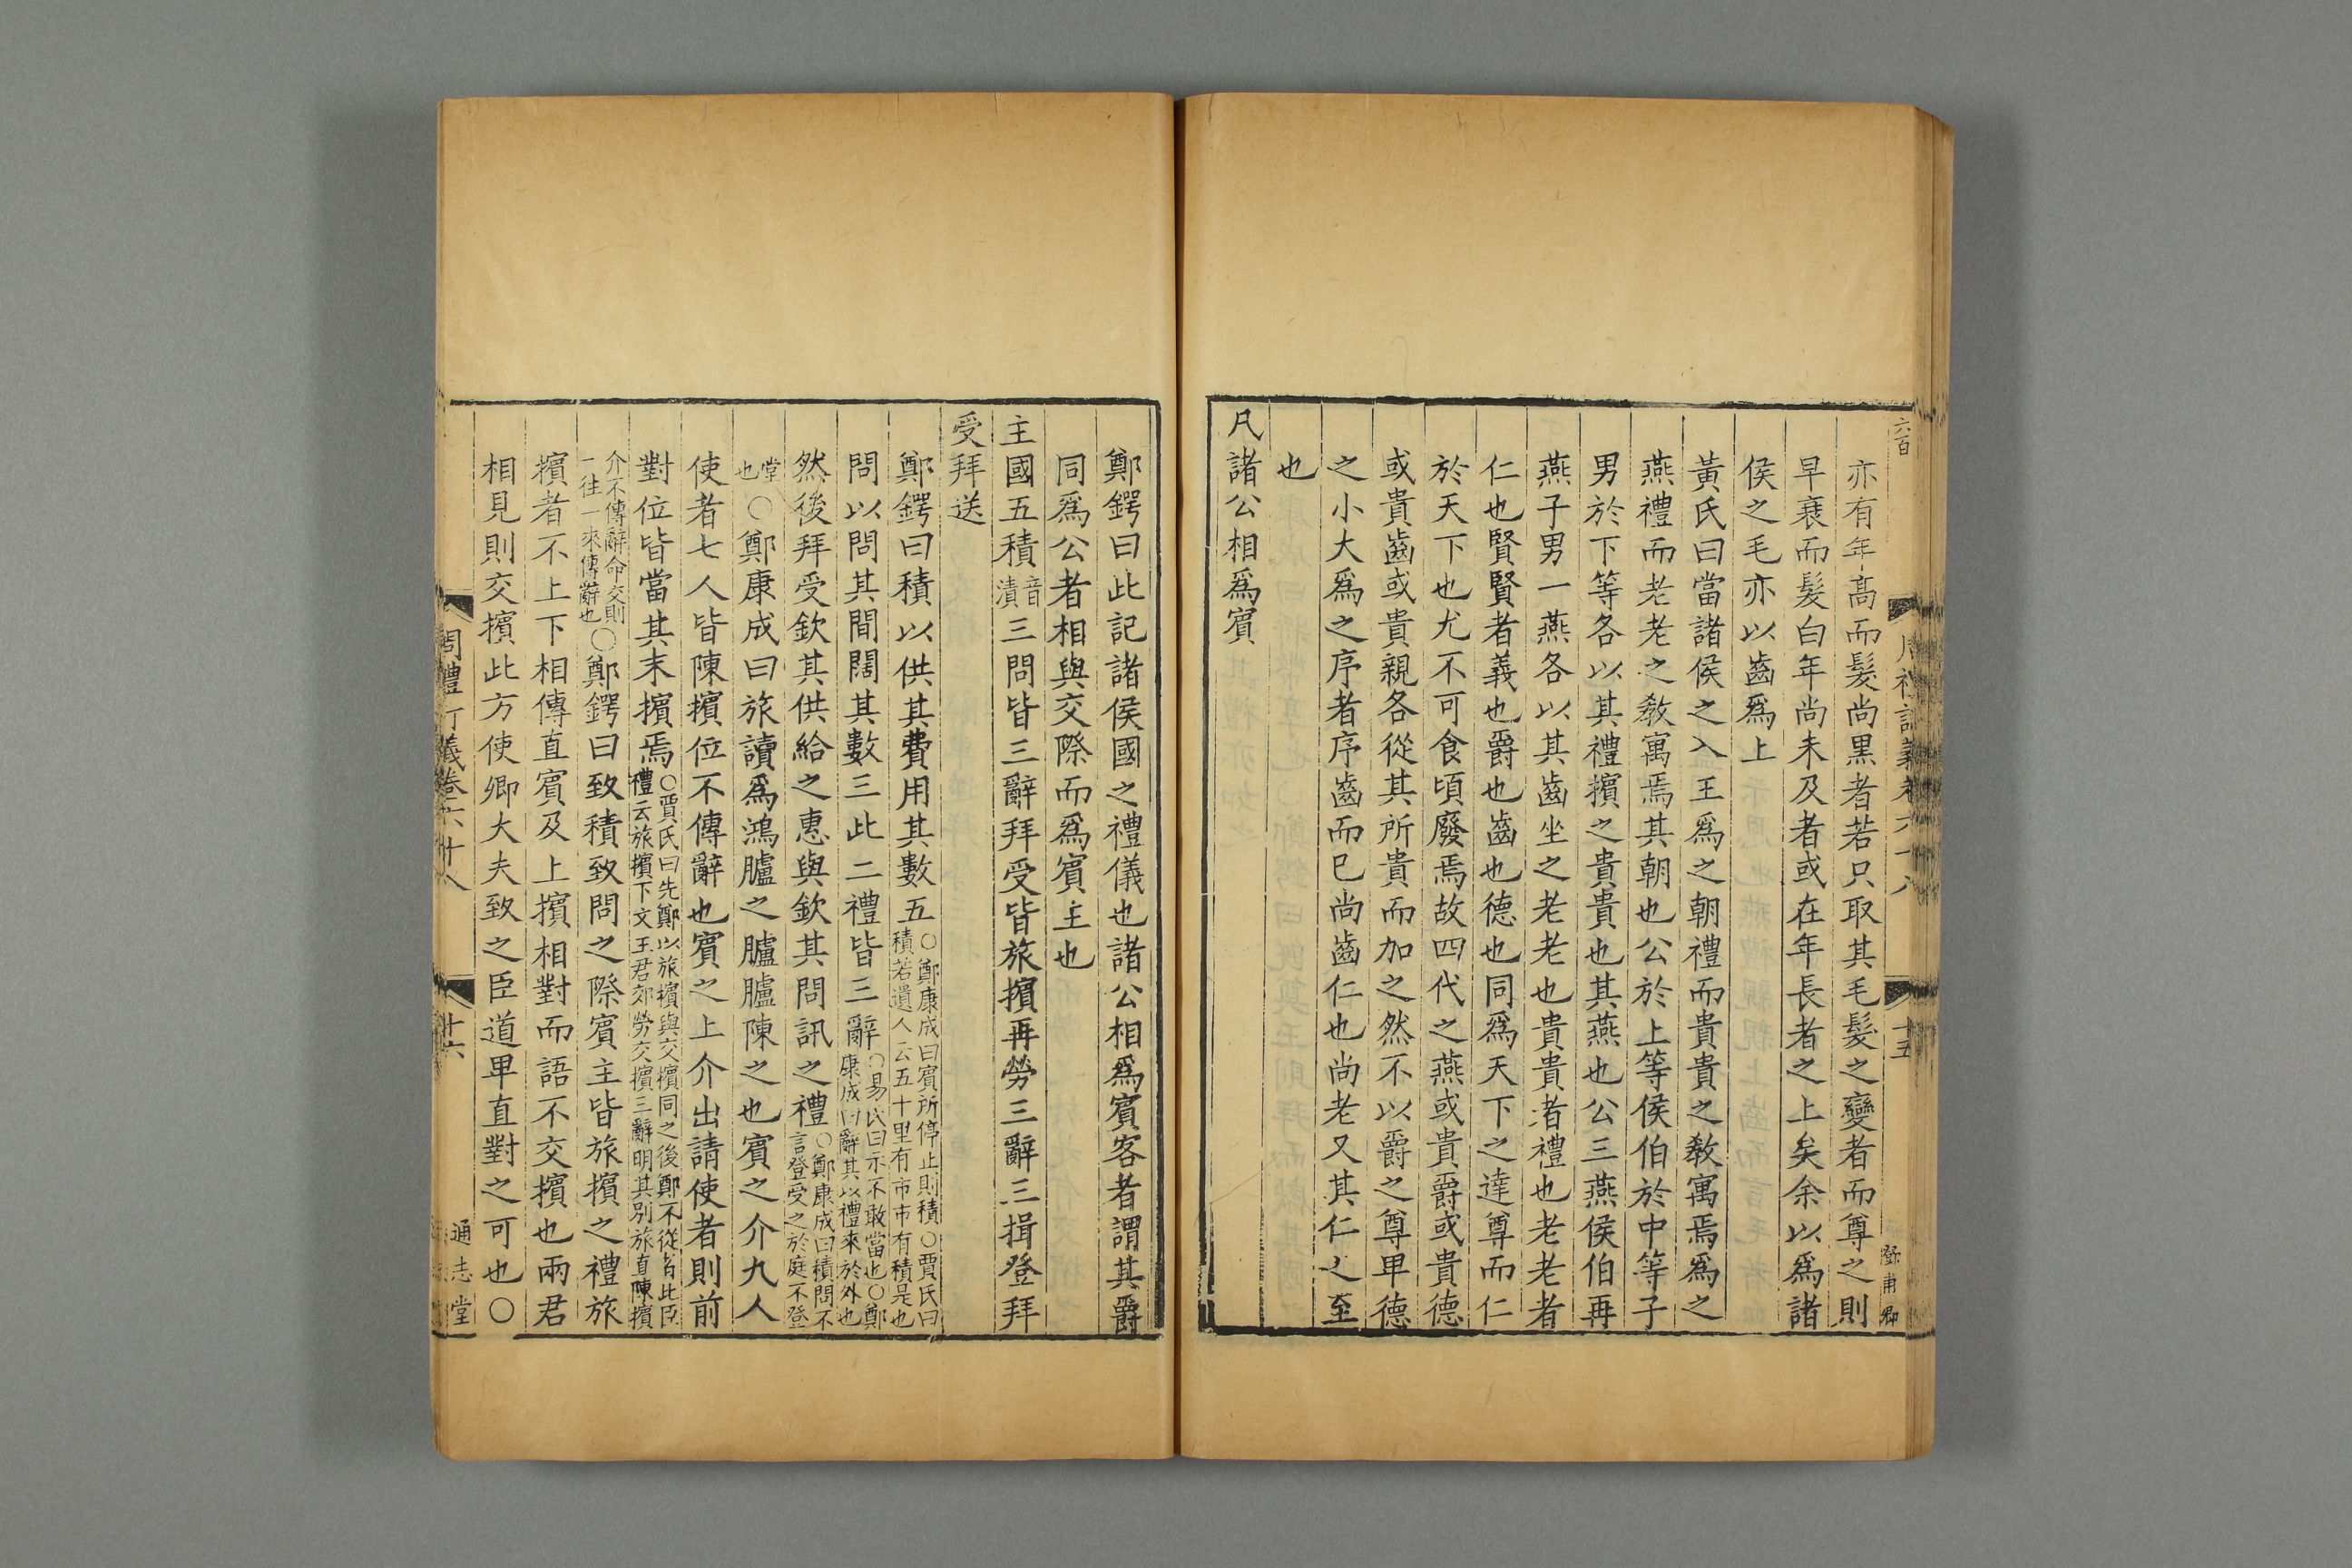 六百
亦有年高而髮尚黑者若只取其毛髮之變者而尊之則
早衰而髮白年尚未及者或在年長者之上矣余以爲諸
侯之毛亦以齒爲上
黃氏曰當諸侯之入王爲之朝禮而貴貴之教寓焉爲之
燕禮而老老之教寓焉其朝也公於上等侯伯於中等子
男於下等各以其禮擯之貴貴也其燕也公三燕侯伯再
燕子男一燕各以其齒坐之老老也貴貴者禮也老老者
仁也賢賢者義也爵也齒也德也同爲天下之達尊而仁
於天下也尤不可食頃廢焉故四代之燕或貴爵或貴德
或貴齒或貴親各從其所貴而加之然不以爵之尊卑德
之小大爲之序者序齒而已尚齒仁也尚老又其仁之至
也
凡諸公相爲賓
十五
鄭鍔曰此記諸侯國之禮儀也諸公相爲賓客者謂其爵
同爲公者相與交際而爲賓主也
主國五積音漬三問皆三辭拜受皆旅擯再勞三辭三揖登拜
受拜送
鄭鍔曰積以供其費用其數五○鄭康成曰賓所停止則積○賈氏曰積若遺人云五十里有市市有積是也
問以問其間闊其數三此二禮皆三辭○易氏曰示不敢當也○鄭康成曰辭其以禮來於外也
然後拜受欽其供給之惠與欽其問訊之禮○鄭康成曰積問不言登受之於庭不登
堂也○鄭康成曰旅讀爲鴻臚之臚臚陳之也賓之介九人
使者七人皆陳擯位不傳辭也賓之上介出請使者則前
對位皆當其末擯焉○賈氏曰先鄭以旅擯與交擯同之後鄭不從者此臣禮云旅擯下文主君郊勞交擯三辭明其別旅直陳擯
介不傳辭命交則一往一來傳辭也○鄭鍔曰致積致問之際賓主皆旅擯之禮旅
擯者不上下相傳直賓及上擯相對而語不交擯也兩君
相見則交擯此方使卿大夫致之臣道卑直對之可也○
周禮訂義卷六十八
十六
通志堂